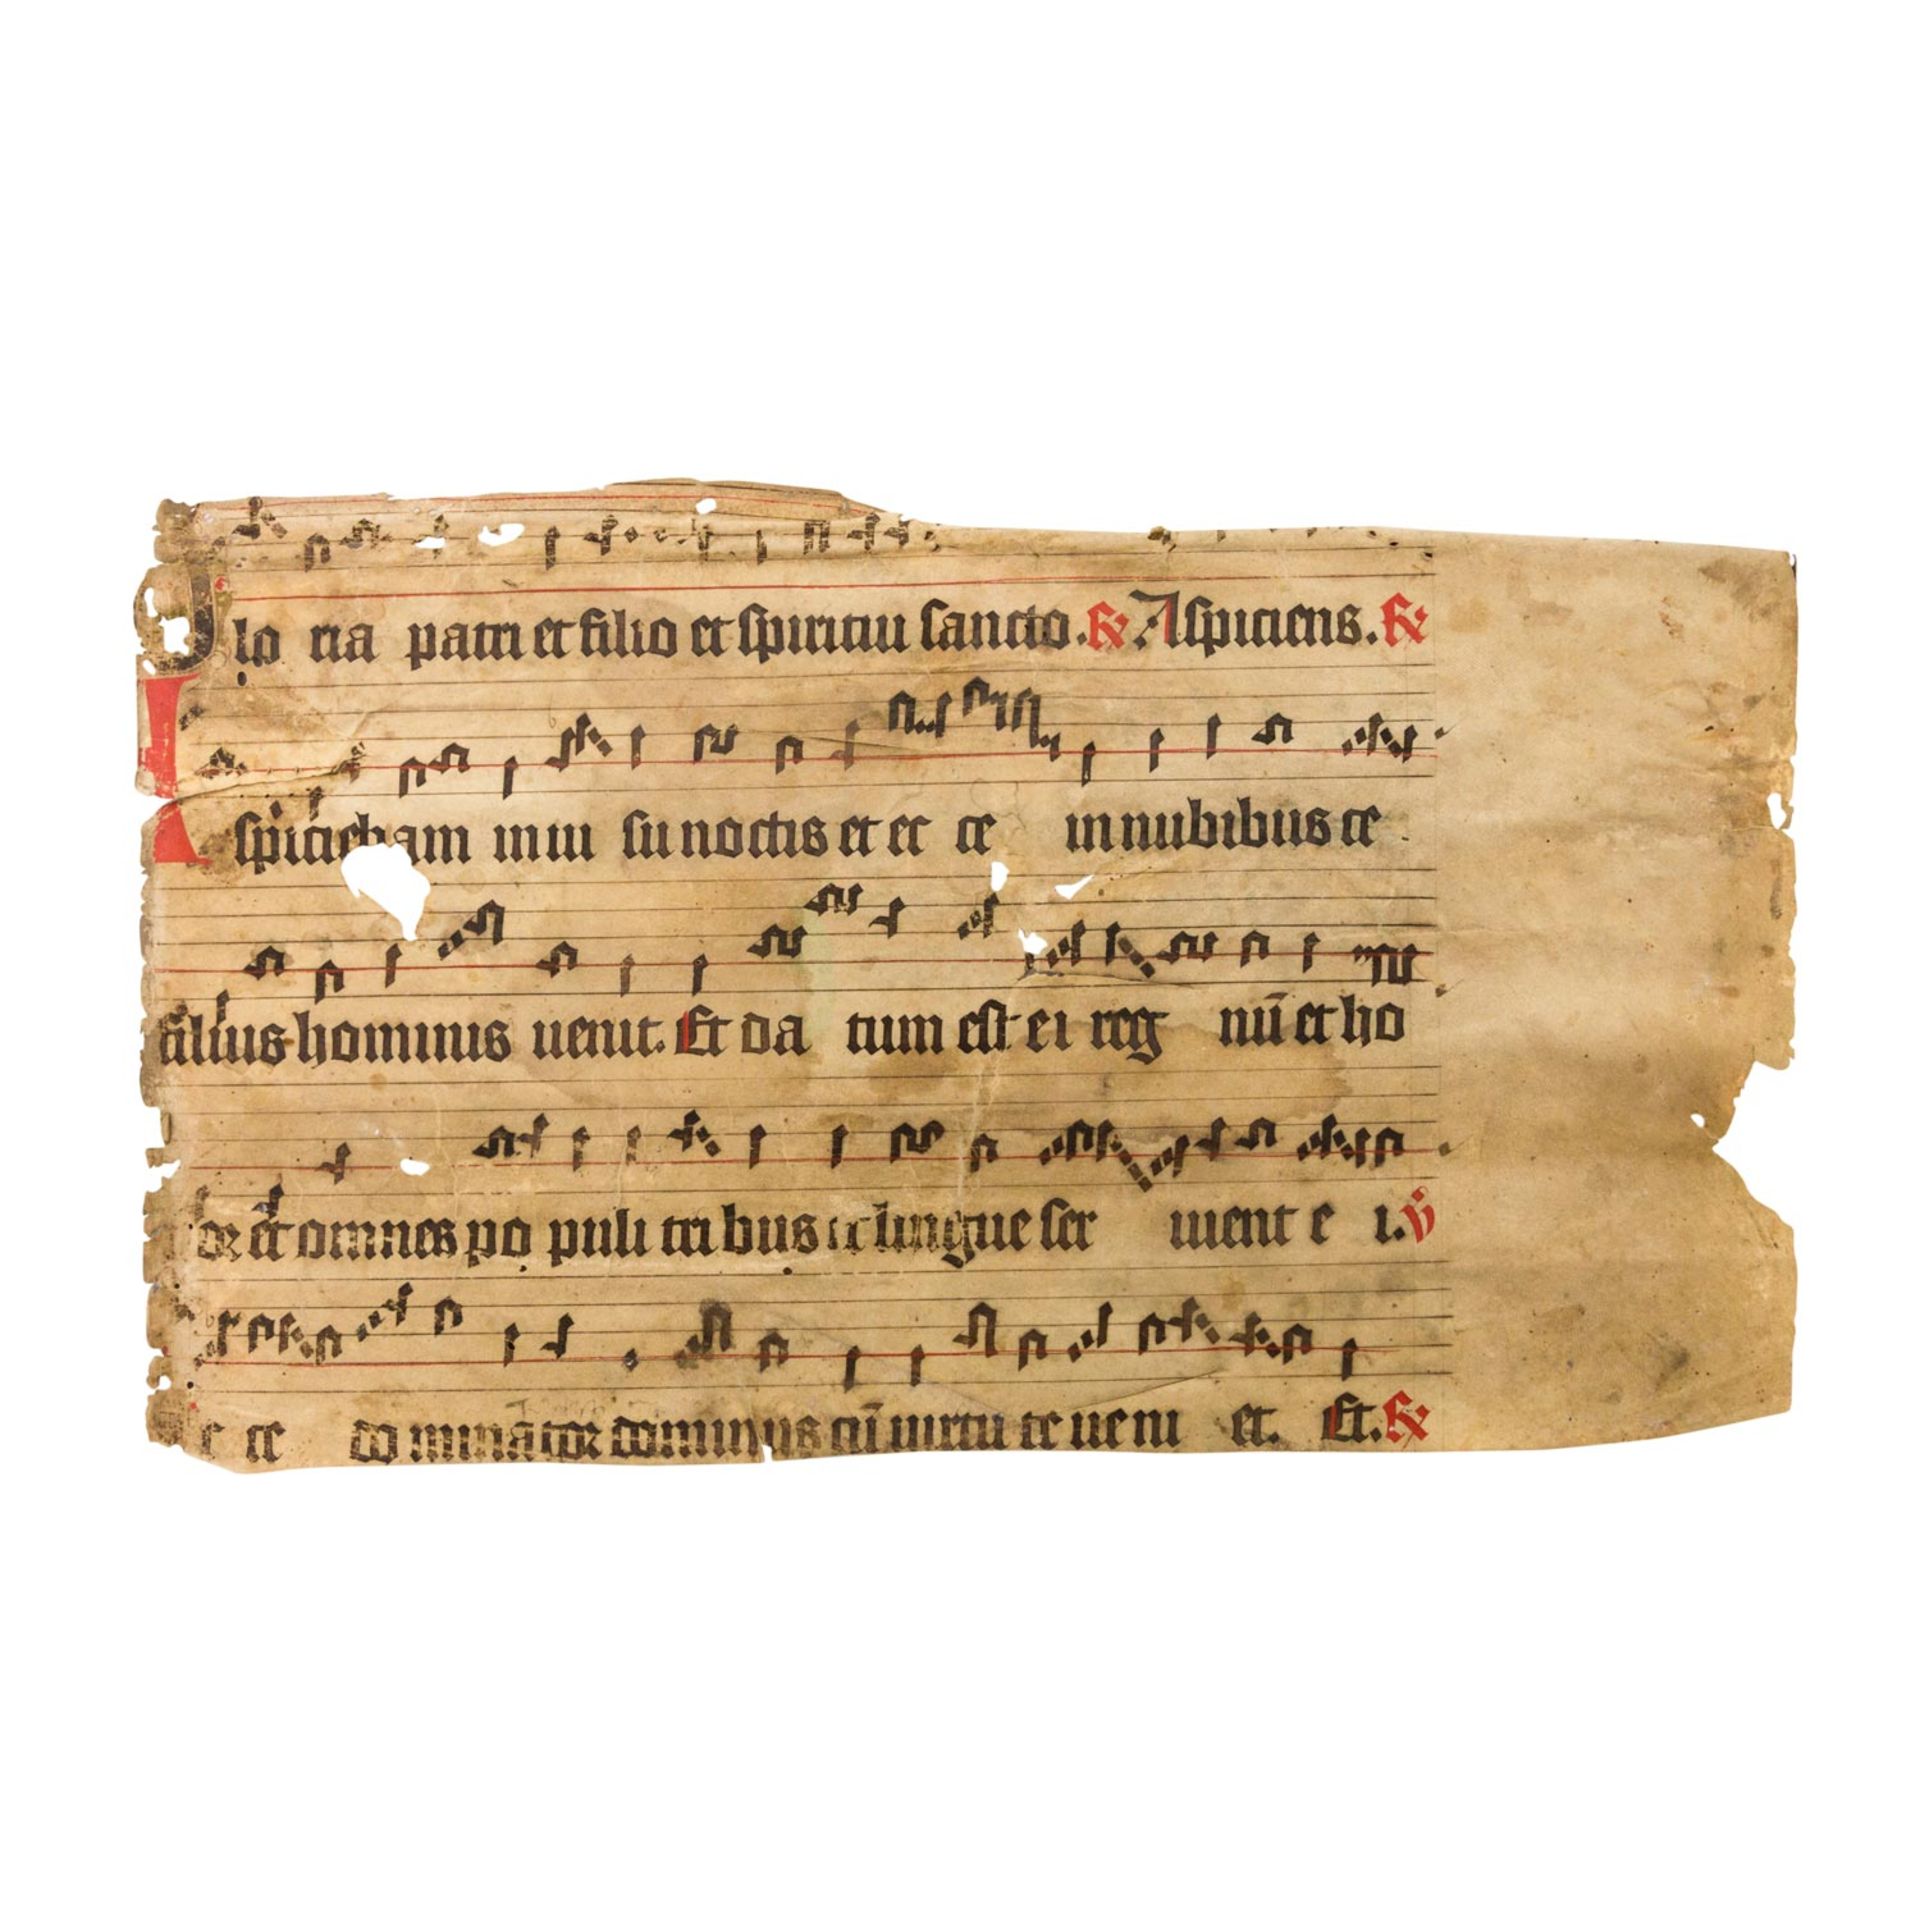 Glo ria patri et filio et spiritui sancto. ℟ Aspiciens. ℟
Aspiciebam in ui su noctis et ec ce in nubibus ce
filius hominis uenit. Et da tum est ei reg nū et ho
or et omnes po puli tri bus et lingue ser uient e i. ℣
E c ce do minator dominus cū uirtu te ueni et. Et. ℟